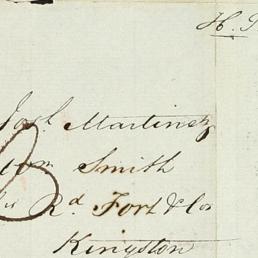 H.
Josh. Martinez
Wm Smith
Rd Fort & Co
Kingston